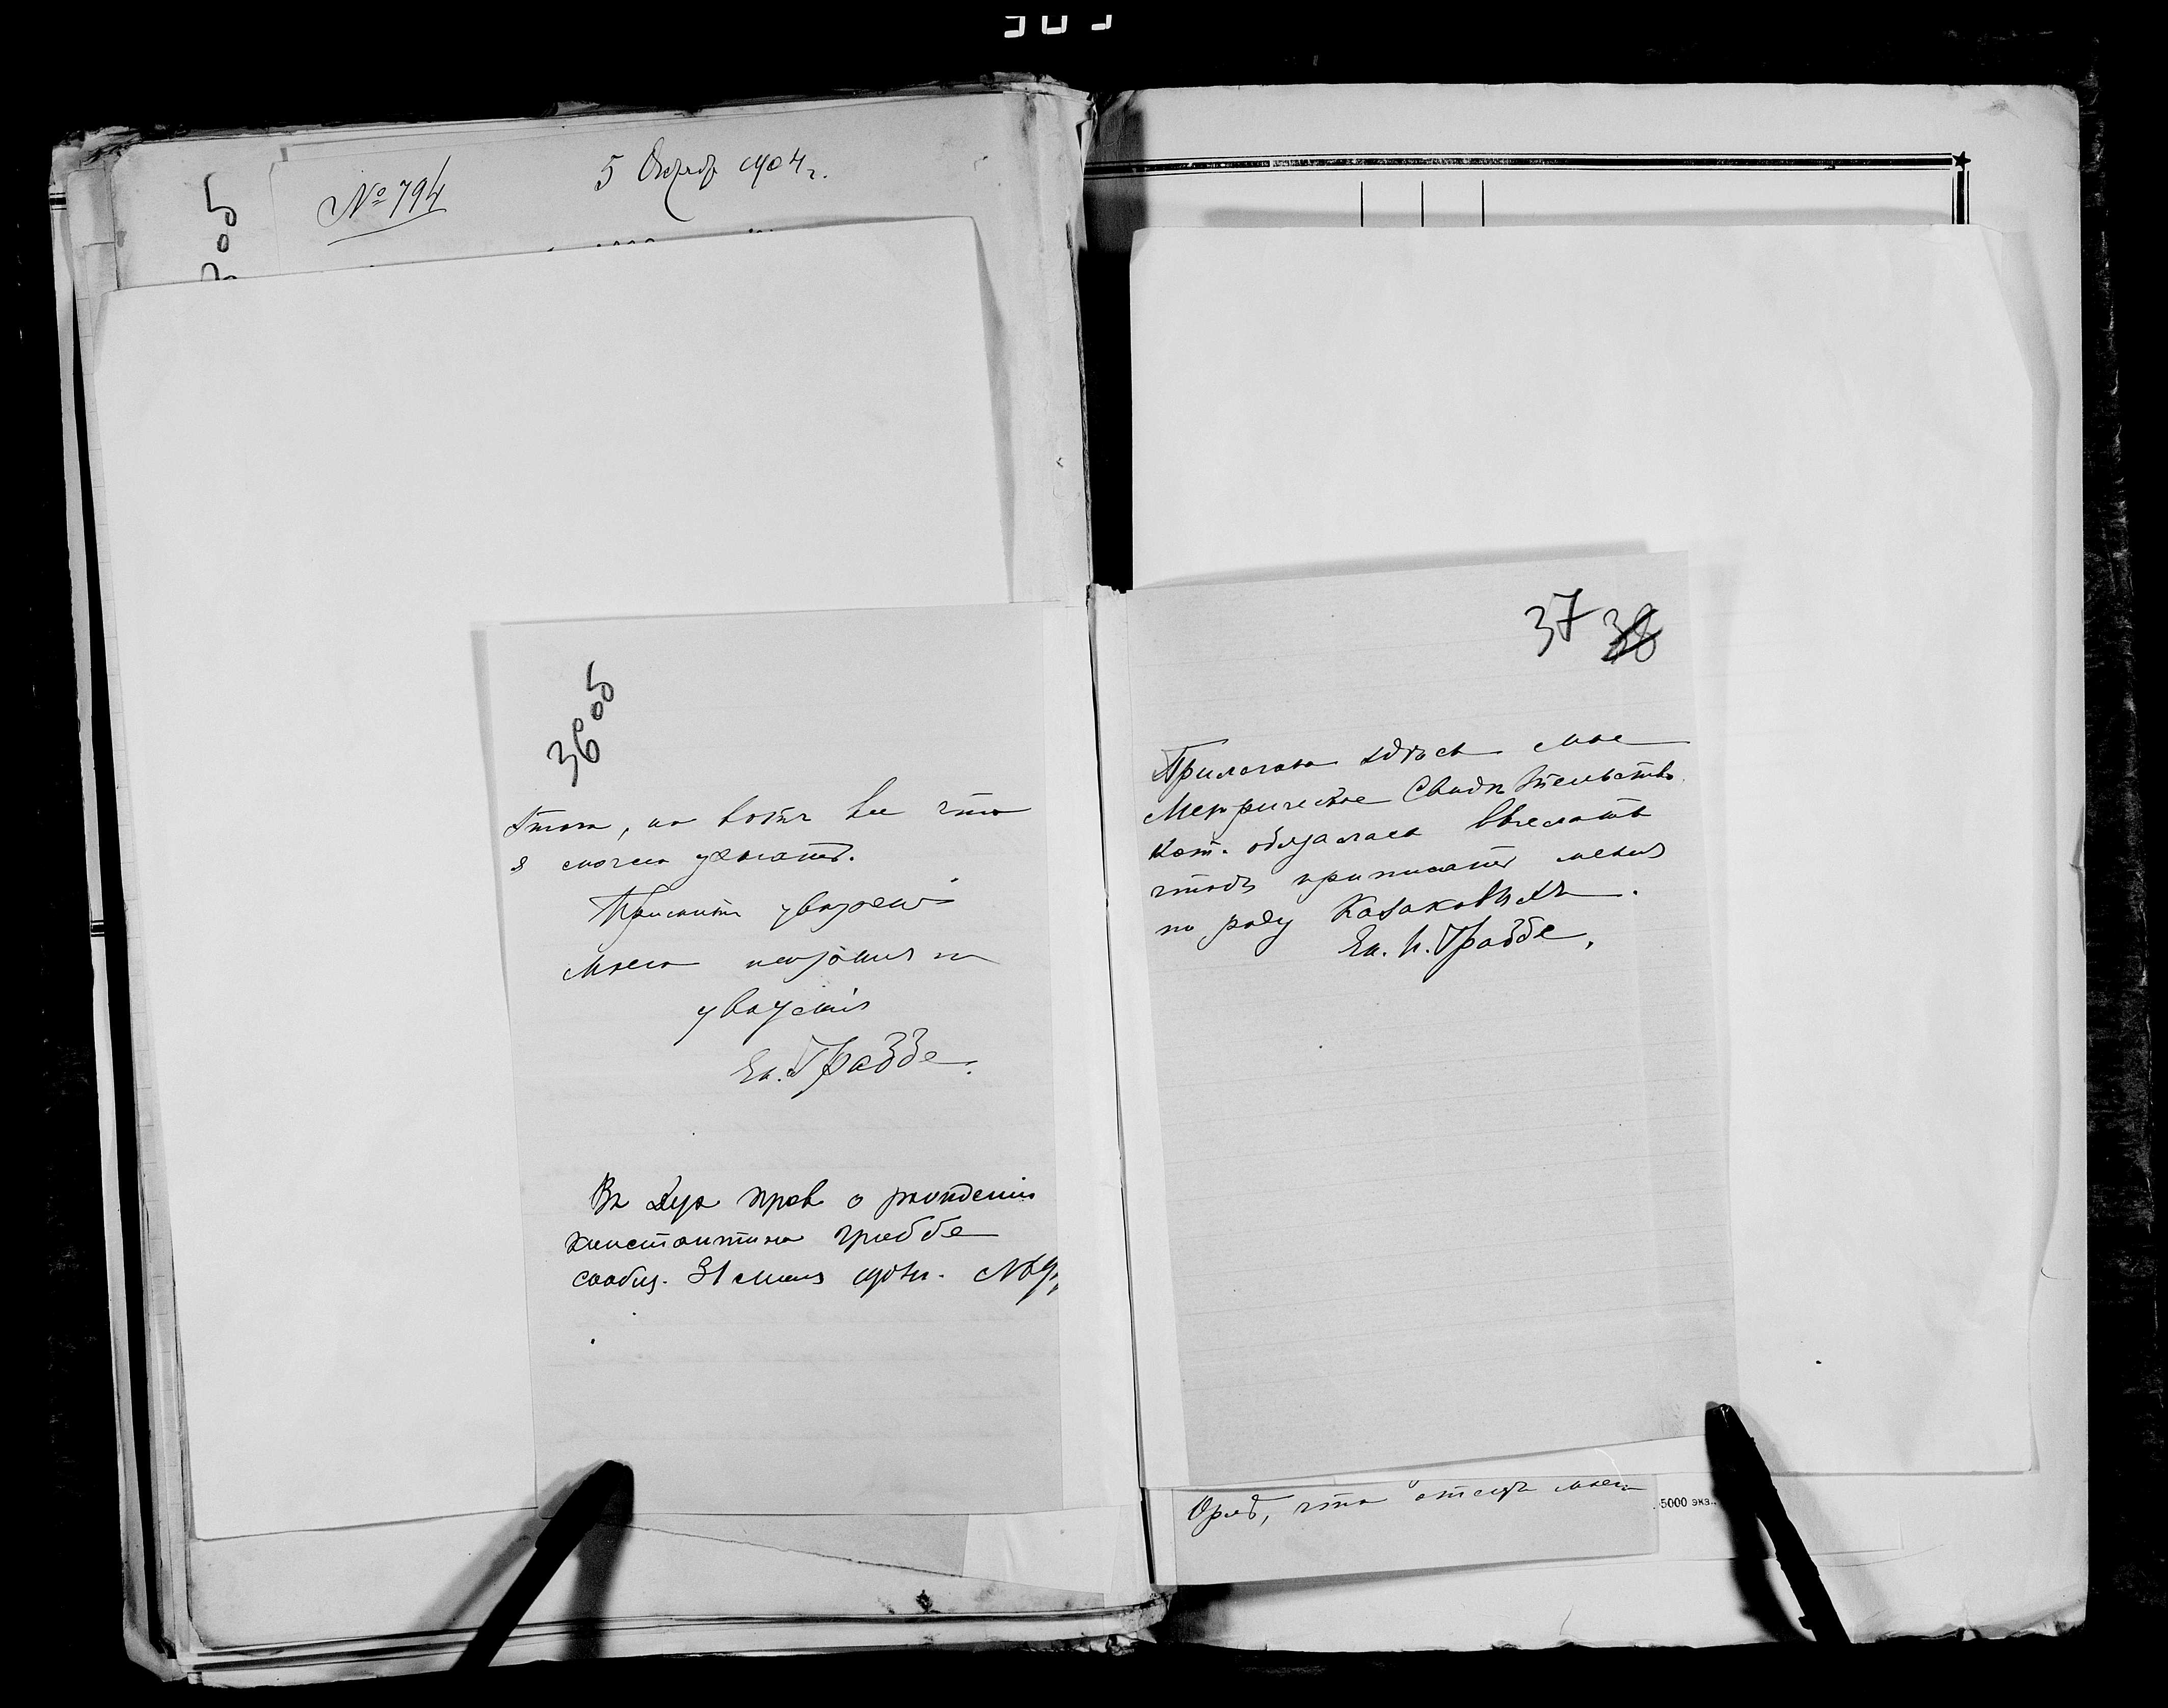 № 794
5 Октяб 1904 г.
36 об
этом, но вотъ все что
я могла узнать.
уверенiе
моего
уваженiя
Ек. Граббе.
Въ Дух прав о рожденiи
Константина Граббе
сообщ. 31 мая 1904 г. №
37 38
Прилагаю здѣсь мое
Метрическое Свидѣтельство
кот. обязалась выслать
чтобъ приписать меня
по роду Казаковыхъ.
Ек. И. Граббе.
что отецъ
5000 экз.